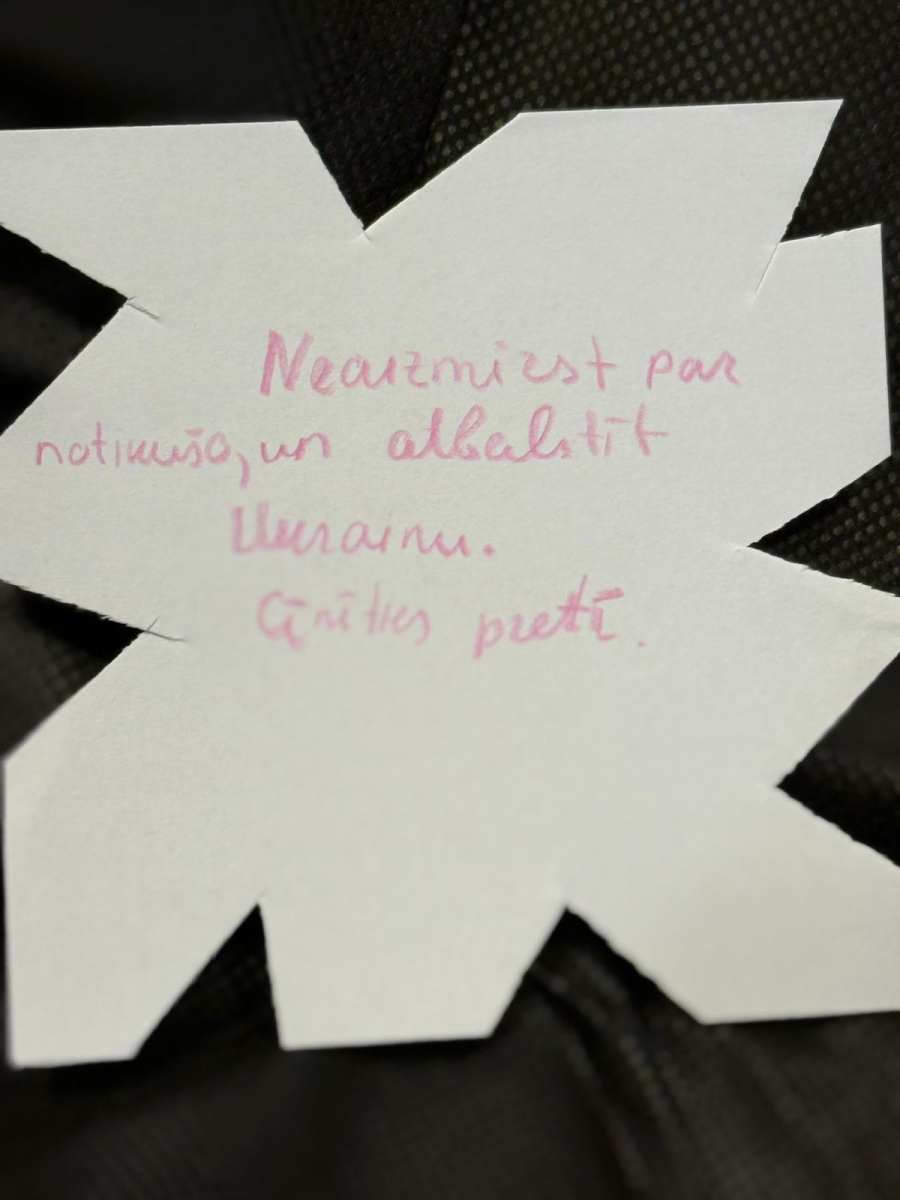 Neaizmirst par
notikušo, un atbalstīt
Ukrainu.
Cīnīties pretī.